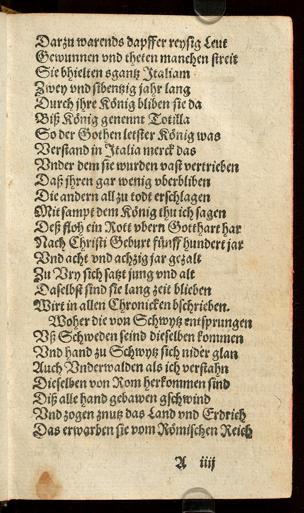 Darzu warends dapffer reysig Leut
Gewunnen vnd theten manchen streit
Sie bhielten sgantz Italiam
Zwey vnd sibentzig jahr lang
Durch jhre König bliben sie da
Biß König genennt Totilla
So der Gothen letster König was
Verstand in Italia merck das
Vnder dem sie wurden vast vertrieben
Daß jhren gar wenig vberbliben
Die andern all zu todt erschlagen
Mit sampt dem König thu ich sagen
Deß floh ein Rott vbern Gotthart har
Nach Christi Geburt fünff hundert jar
Vnd acht vnd achzig jar gezalt
Zu Vry sich satzt jung vnd alt
Daselbst sind sie lang zeit blieben
Wirt in allen Chronicken bschrieben.
Woher die von Schwytz entsprungen
Vß Schweden seind dieselben kommen
Vnd hand zu Schwytz sich nider glan
Auch Vnderwalden als ich verstahn
Dieselben von Rom herkommen sind
Diß alle hand gebawen gschwind
Vnd zogen znutz das Land vnd Erdrich
Das erwarben sie vom Römischen Reich
A iiij